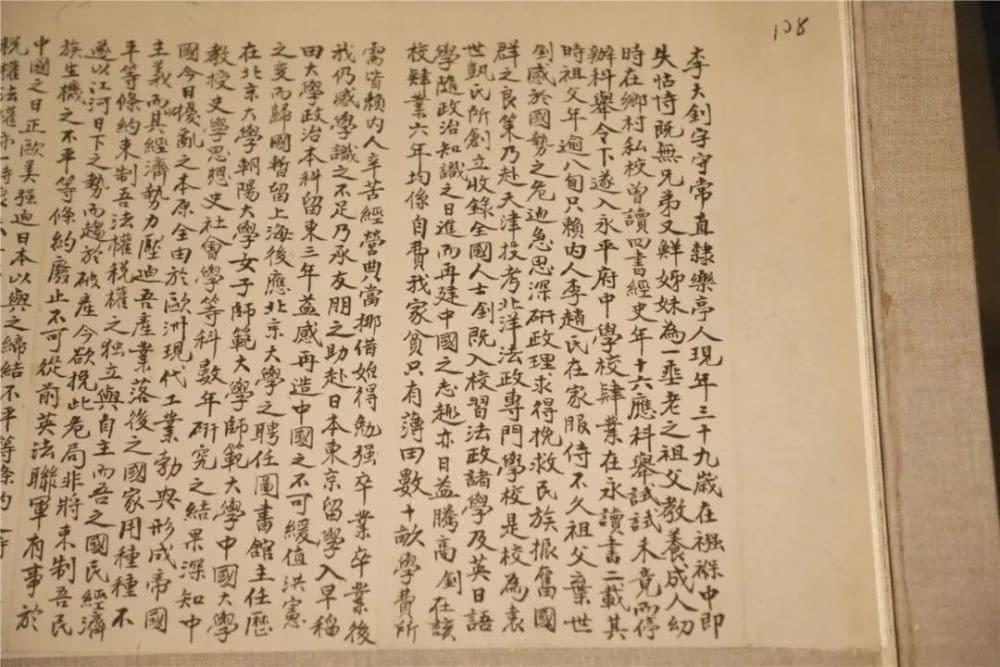 108
李大釗字守常直隸樂亭人現年三十九歲在襁褓中即
失怙恃既無兄弟又鮮姊妹為一垂老之祖父教養成人幼
時在鄉村私校曾讀四書經史年十六應科舉試試未竟而停
辦科舉令下遂入永平府中學校肄業在永讀書二載其
時祖父年逾八旬只賴內人李趙氏在家服侍不久祖父棄世
釗感於國勢之危迫急思深研政理求得挽救民族振奮國
群之良策乃赴天津投考北洋法政專門學校是校為袁
世凱氏所創立收錄全國人士釗既入校習法政諸學及英日語
學隨政治知識之日進而再建中國之志趣亦日益騰高釗在該
校肄業六年均係自費我家貧只有薄田數十畝學費所
需皆賴內人辛苦經營典當挪借始得勉強卒業卒業後
我仍感學識之不足乃承友朋之助赴日本東京留學入早稻
田大學政治本科留東三年益感再造中國之不可緩值洪憲
之變而歸國暫留上海後應北京大學之聘任圖書館主任歷
在北京大學朝陽大學女子師範大學師範大學中國大學
教授史學思想史社會學等科數年研究之結果深知中
國今日擾亂之本原全由於歐洲現代工業勃興形成帝國
主義而其經濟勢力壓迫吾產業落後之國家用種種不
平等條約束制吾法權稅權之獨立與自主而吾之國民經濟
遂以江河日下之勢而趨於破產今欲挽此危局非將束制吾民
族生機之不平等條約廢止不可從前英法聯軍有事於
中國之日正歐美強迫日本以與之締結不平等條約之時
稅權法權亦一時